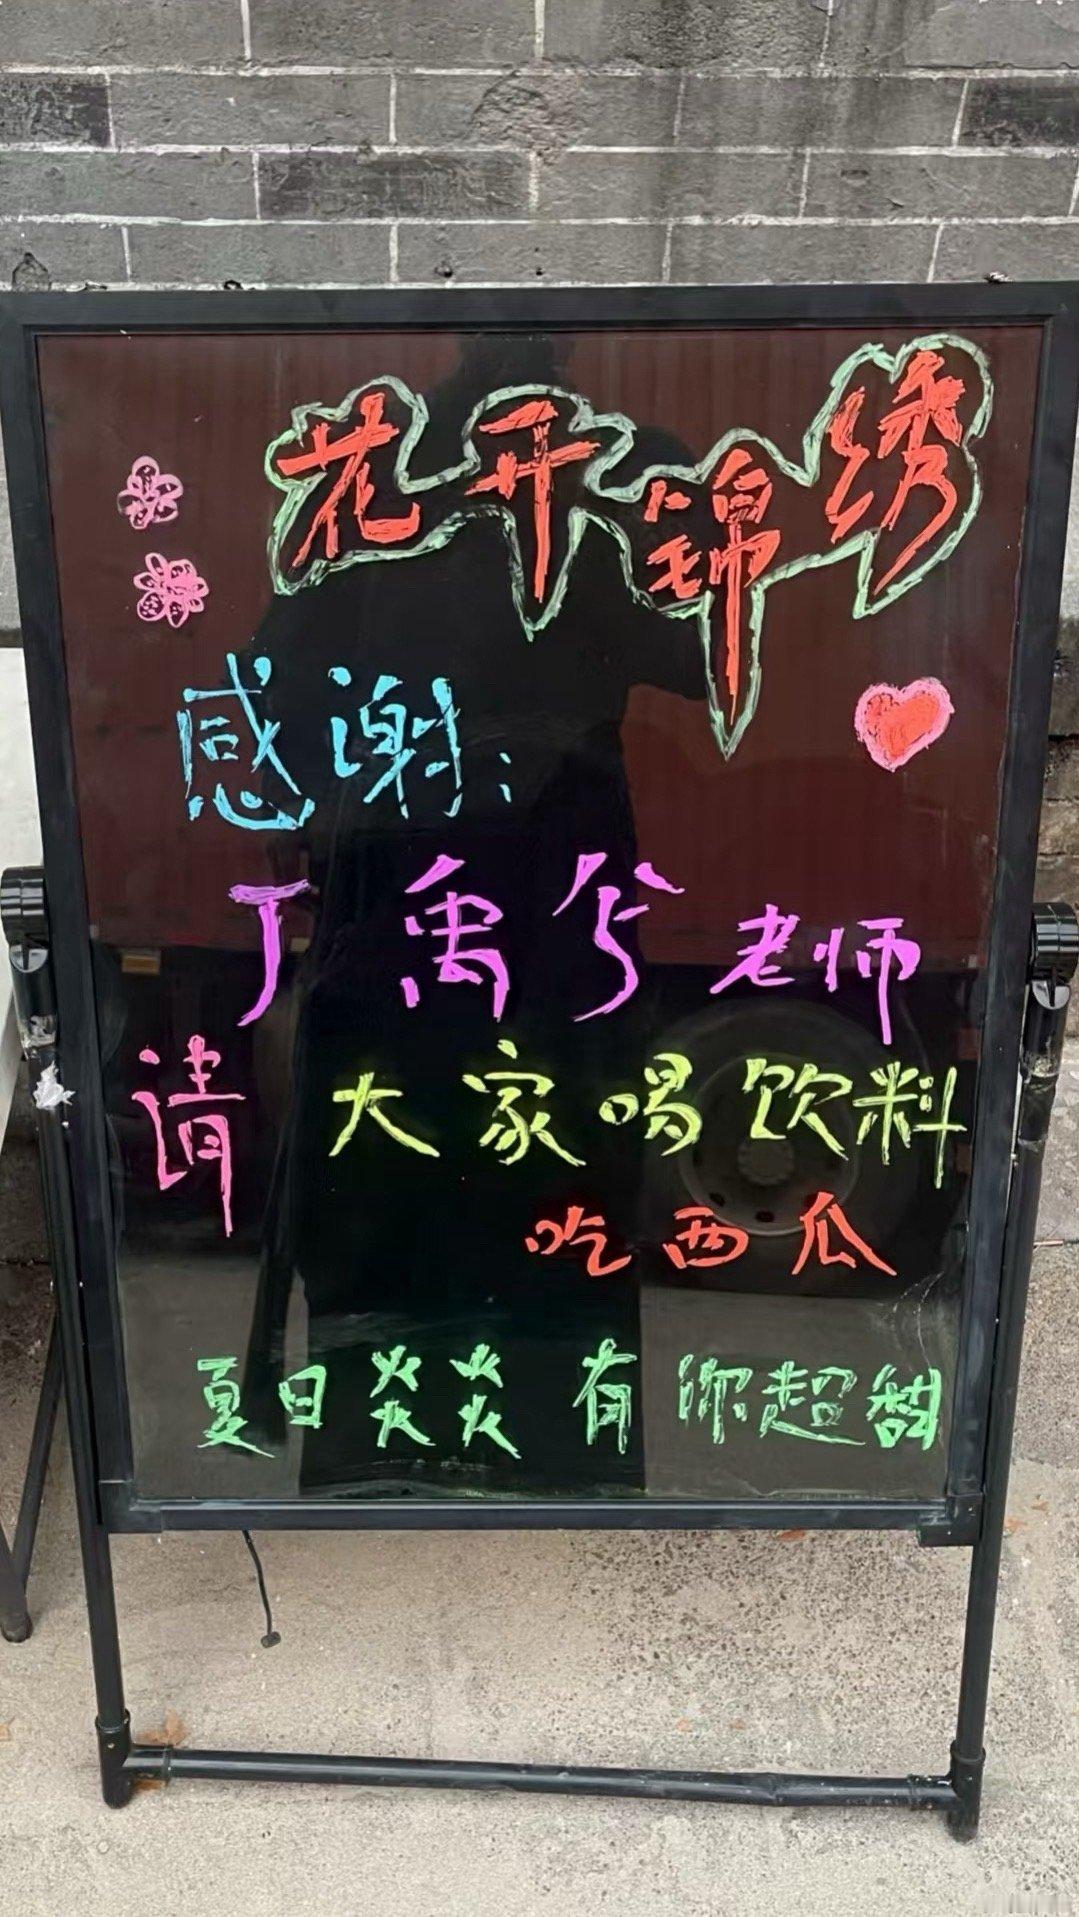 花开锦绣
感谢:
丁禹兮老师
请大家喝饮料
吃西瓜
夏日炎炎 有你超甜